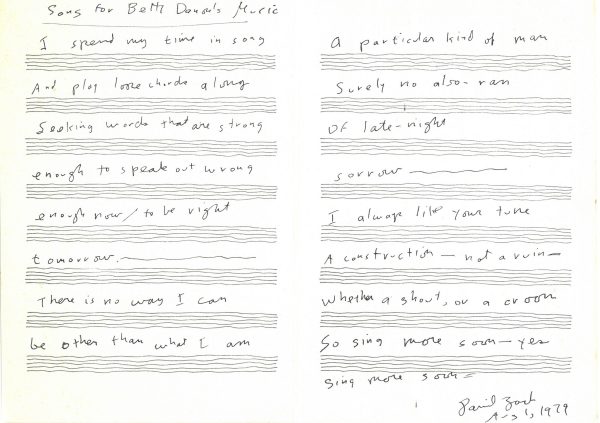 Song for Beth Music
I spend my time in song
And play loose chords along
Seeking words that are strong
enough to speak out wrong
enough now/to be right
tomorrow.
There is no way I can
be other than what I am
A particular kind of man
Surely no also-ran
Of late-night
sorrow
I always like your tune
A construction — not a ruin —
Whether a shout, or a croon
So sing more soon — yes
sing more soon
David Zack
1, 1979